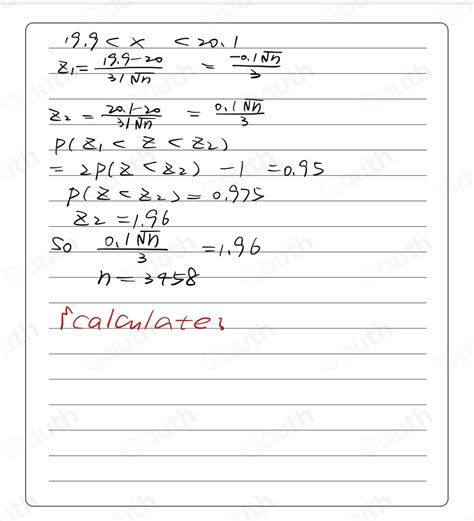 19.9 < x < 20.1
z₁ = (19.9-20)/(3/√n) = (-0.1√n)/3
z₂ = (20.1-20)/(3/√n) = (0.1√n)/3
P(z₁ < z < z₂)
= 2P(z < z₂) - 1 = 0.95
P(z < z₂) = 0.975
z₂ = 1.96
So (0.1√n)/3 = 1.96
n = 3458
Gauth